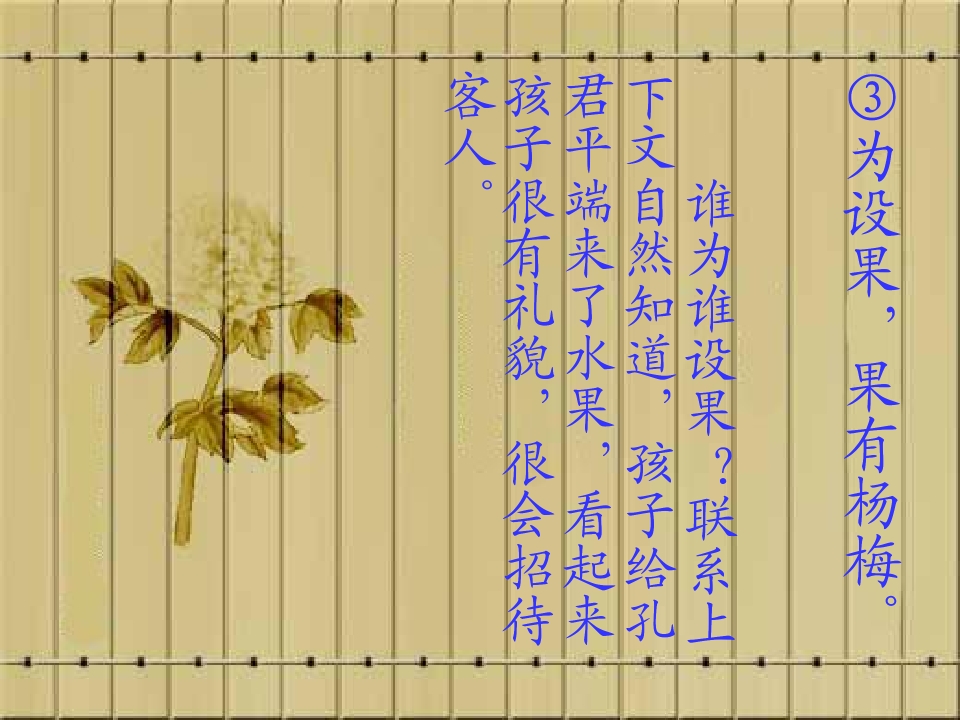 ③为设果，果有杨梅。
谁为谁设果？联系上
下文自然知道，孩子给孔
君平端来了水果，看起来
孩子很有礼貌，很会招待
客人。